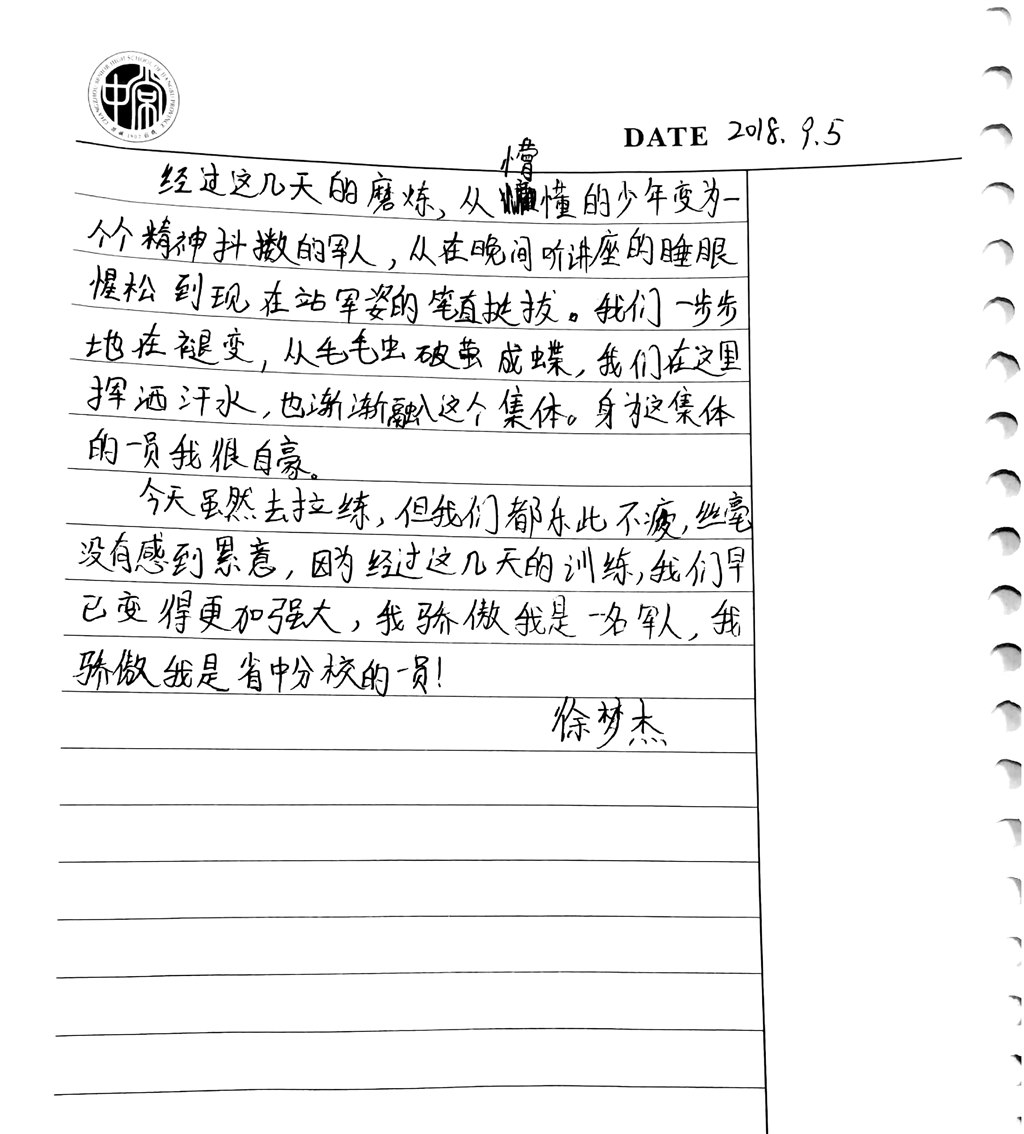 DATE 2018.9.5
经过这几天的磨炼,从懵懂的少年变为一
个个精神抖擞的军人,从在晚间听讲座的睡眼
惺松到现在站军姿的笔直挺拔。我们一步步
地在褪变,从毛毛虫破茧成蝶,我们在这里
挥洒汗水,也渐渐融入这个集体。身为这集体
的一员我很自豪。
今天虽然去拉练,但我们都乐此不疲,丝毫
没有感到累意,因为经过这几天的训练,我们早
已变得更加强大,我骄傲我是一名军人,我
骄傲我是省中分校的一员!
徐梦杰